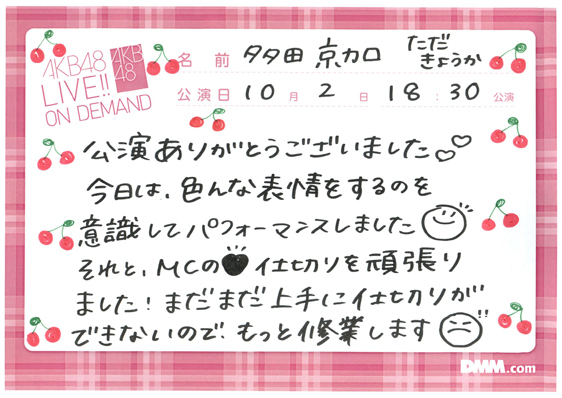 AKB48
LIVE!!
ON DEMAND
AKB
48
名前 多田 京加 ただ きょうか
公演日 10月 2日 18:30公演
公演ありがとうございました♡♡
今日は、色んな表情をするのを
意識してパフォーマンスしました
それと、MCの 仕切りを頑張り
ました!まだまだ上手に仕切りが
できないので、もっと修業します!!
DMM.com